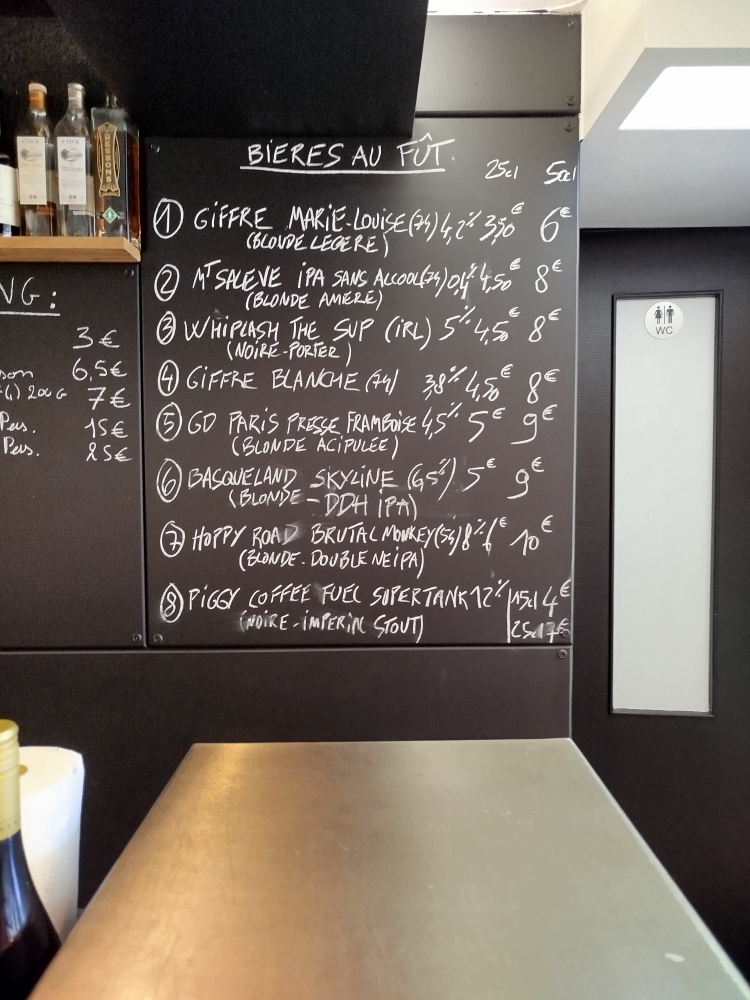 BIERES AU FÛT.
25cl 50cl
① GIFFRE MARIE-LOUISE (74) 4,2% 3,50€ 6€
(BLONDE LEGERE)
② MT SALEVE IPA SANS ALCOOL (74) 0,4% 4,50€ 8€
(BLONDE AMERE)
③ WHIPLASH THE SUP (IRL) 5% 4,50€ 8€
(NOIRE-PORTER)
④ GIFFRE BLANCHE (74) 3,8% 4,50€ 8€
⑤ GD PARIS PRESSE FRAMBOISE 4,5% 5€ 9€
(BLONDE ACIPULEE)
⑥ BASQUELAND SKYLINE (6,5%) 5€ 9€
(BLONDE - DDH IPA)
⑦ HOPPY ROAD BRUTAL MONKEY (54) 8% 6€ 10€
(BLONDE. DOUBLE NEIPA)
⑧ PIGGY COFFEE FUEL SUPERTANK 12% 15cl 4€
(NOIRE - IMPERIAL STOUT) 25cl 7€
NG:
3€
son 6,5€
200G 7€
Pers. 15€
Pers. 25€
WC